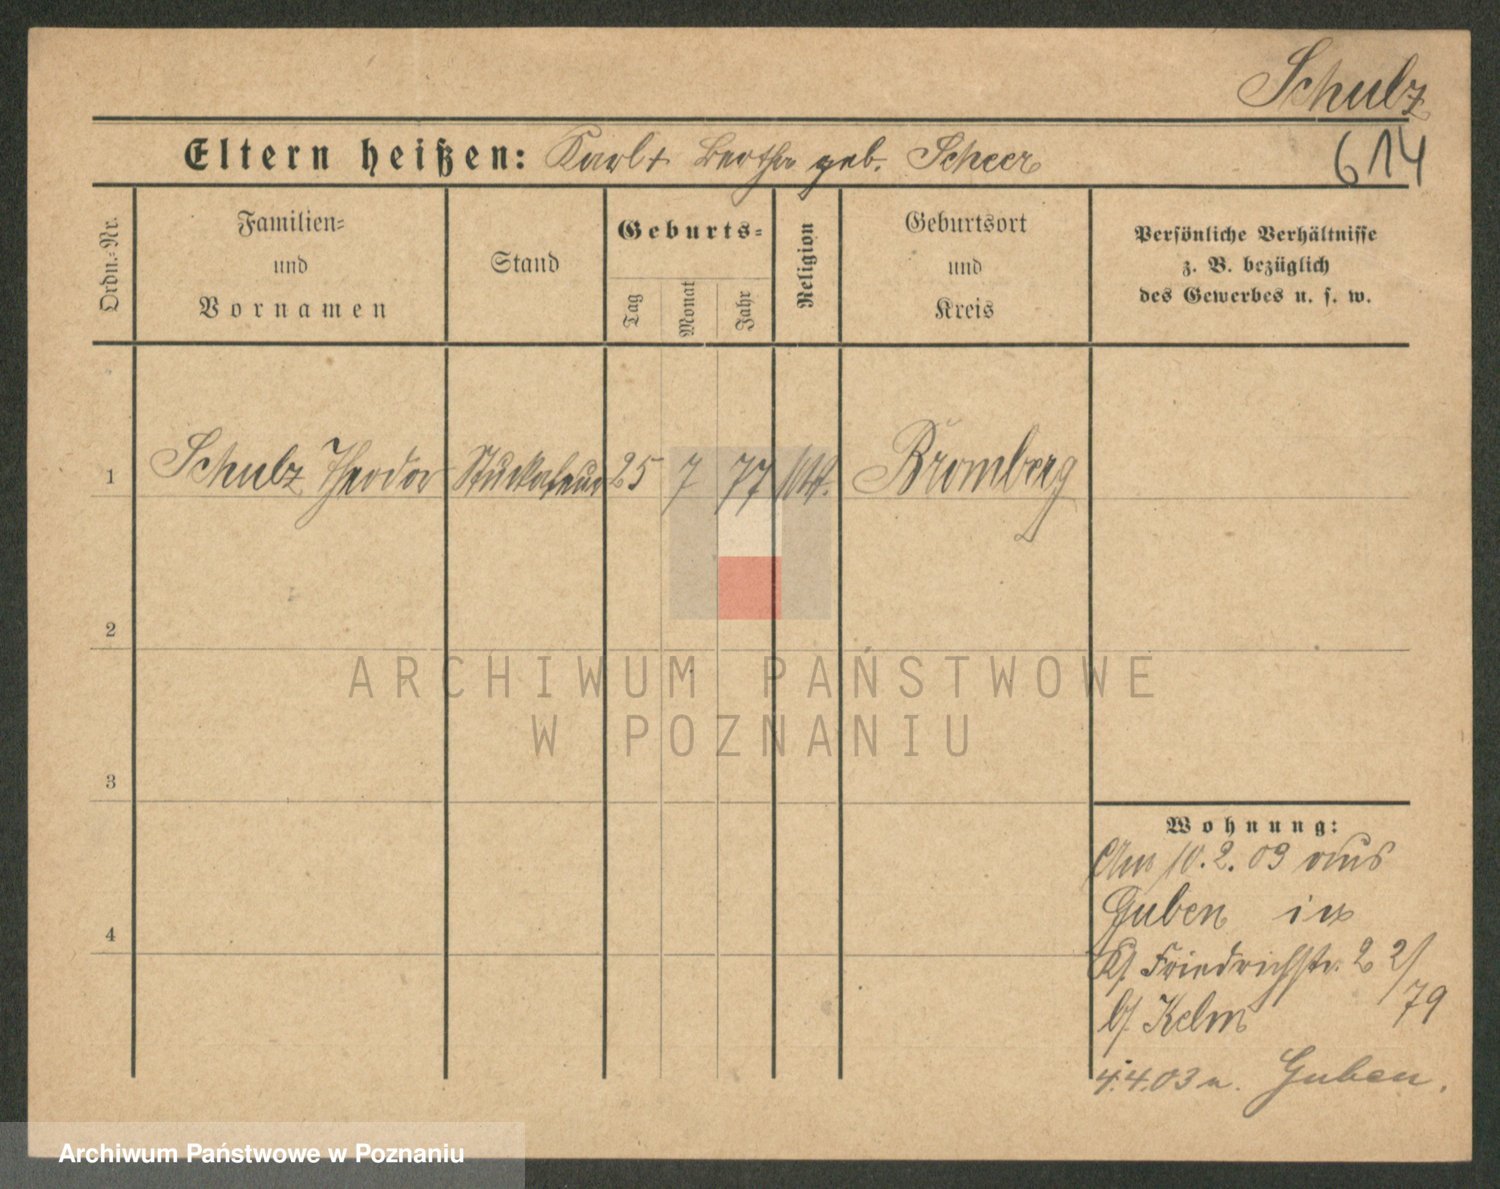 Schulz
Eltern heißen: Karl + Bertha geb. Scheer
614
Ordn.-Nr.
Familien-
und
Vornamen
Stand
Geburts-
Tag
Monat
Jahr
Religion
Geburtsort
und
Kreis
Persönliche Verhältnisse
z. B. bezüglich
des Gewerbes u. s. w.
1 Schulz Theodor Stuckateur 25 7 77 Bromberg
2
3
4
Wohnung:
Am 10.2.03 aus
Guben in
Friedrichstr. 22/
79
b/ Kelm
4.4.03 n. Guben.
ARCHIWUM PAŃSTWOWE
W POZNANIU
Archiwum Państwowe w Poznaniu